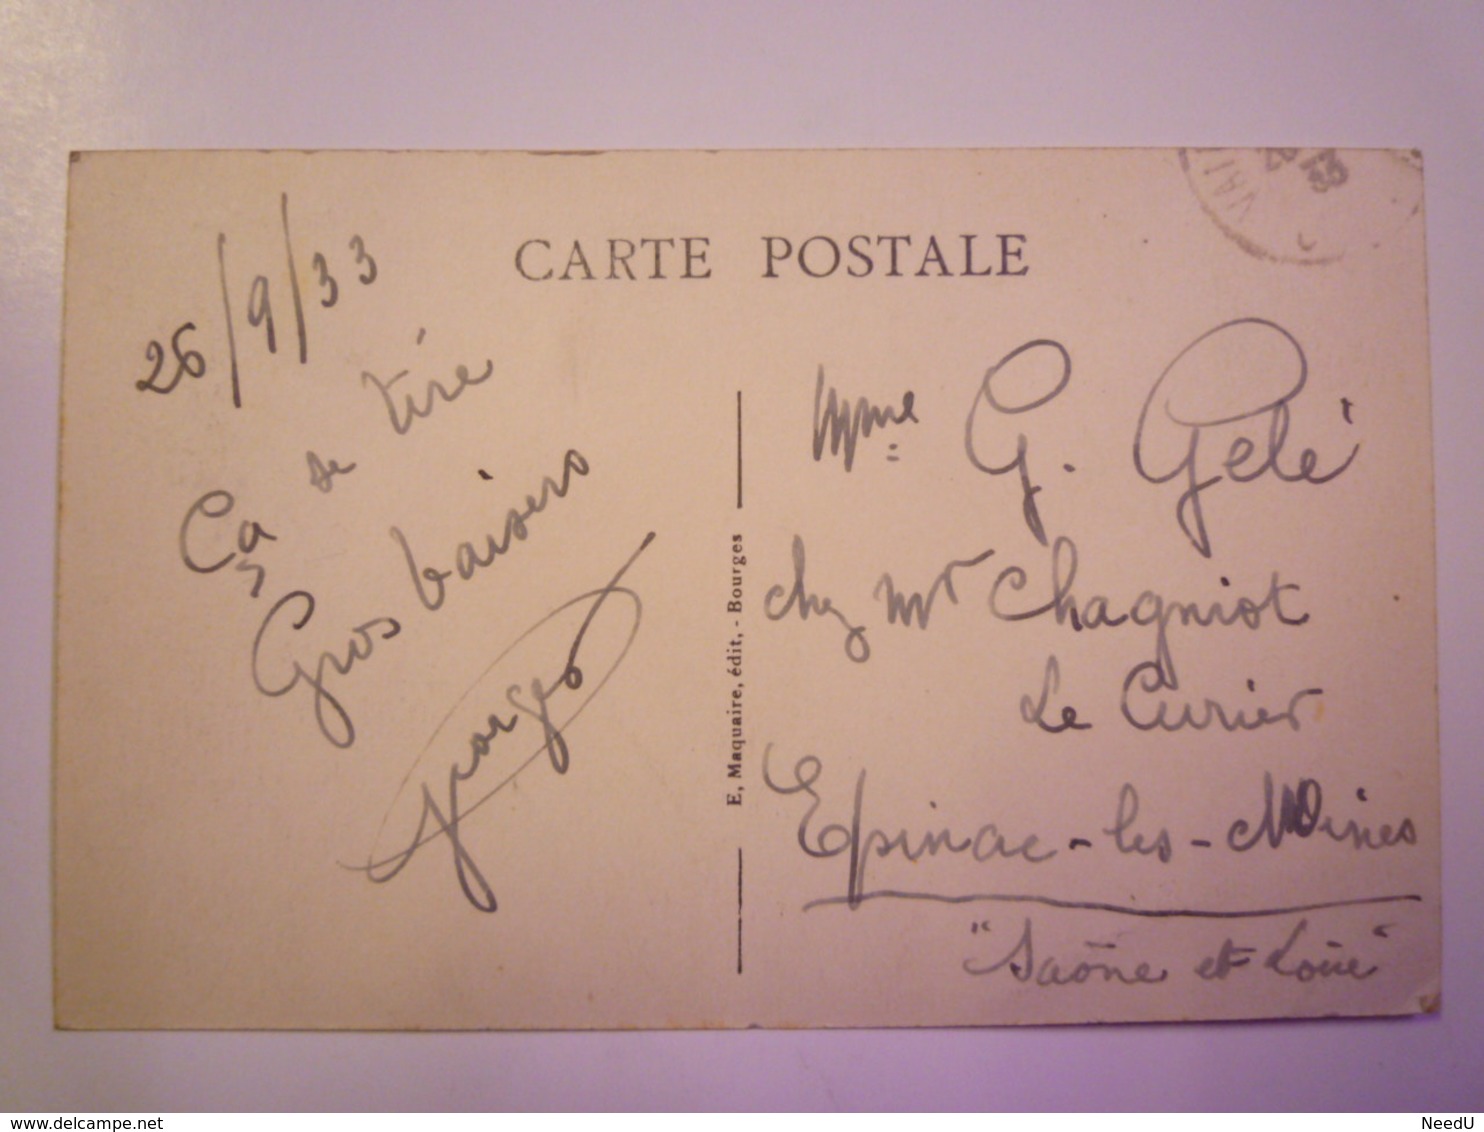 CARTE POSTALE
26/9/33
Ça se tire
Gros baisers
Georges
E. Maquaire, édit. - Bourges
Mme G. Gelé
chez Mr Chagniot
Le Curier
Epinac-les-Mines
"Saône et Loire"
delcampe.net
NeedU